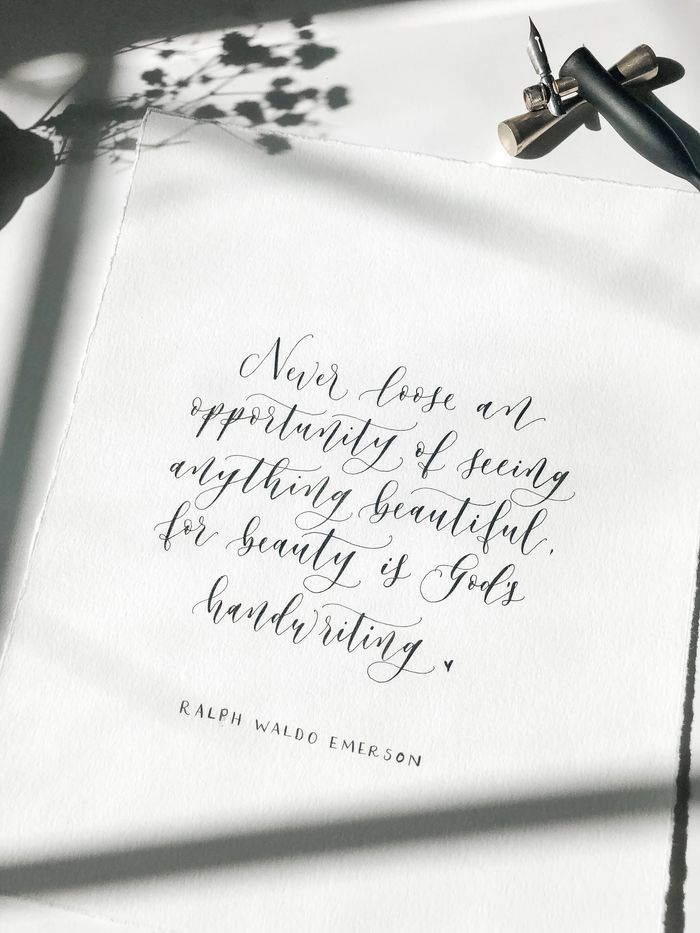 Never loose an
opportunity of seeing
anything beautiful,
for beauty is God's
handwriting ♥
RALPH WALDO EMERSON